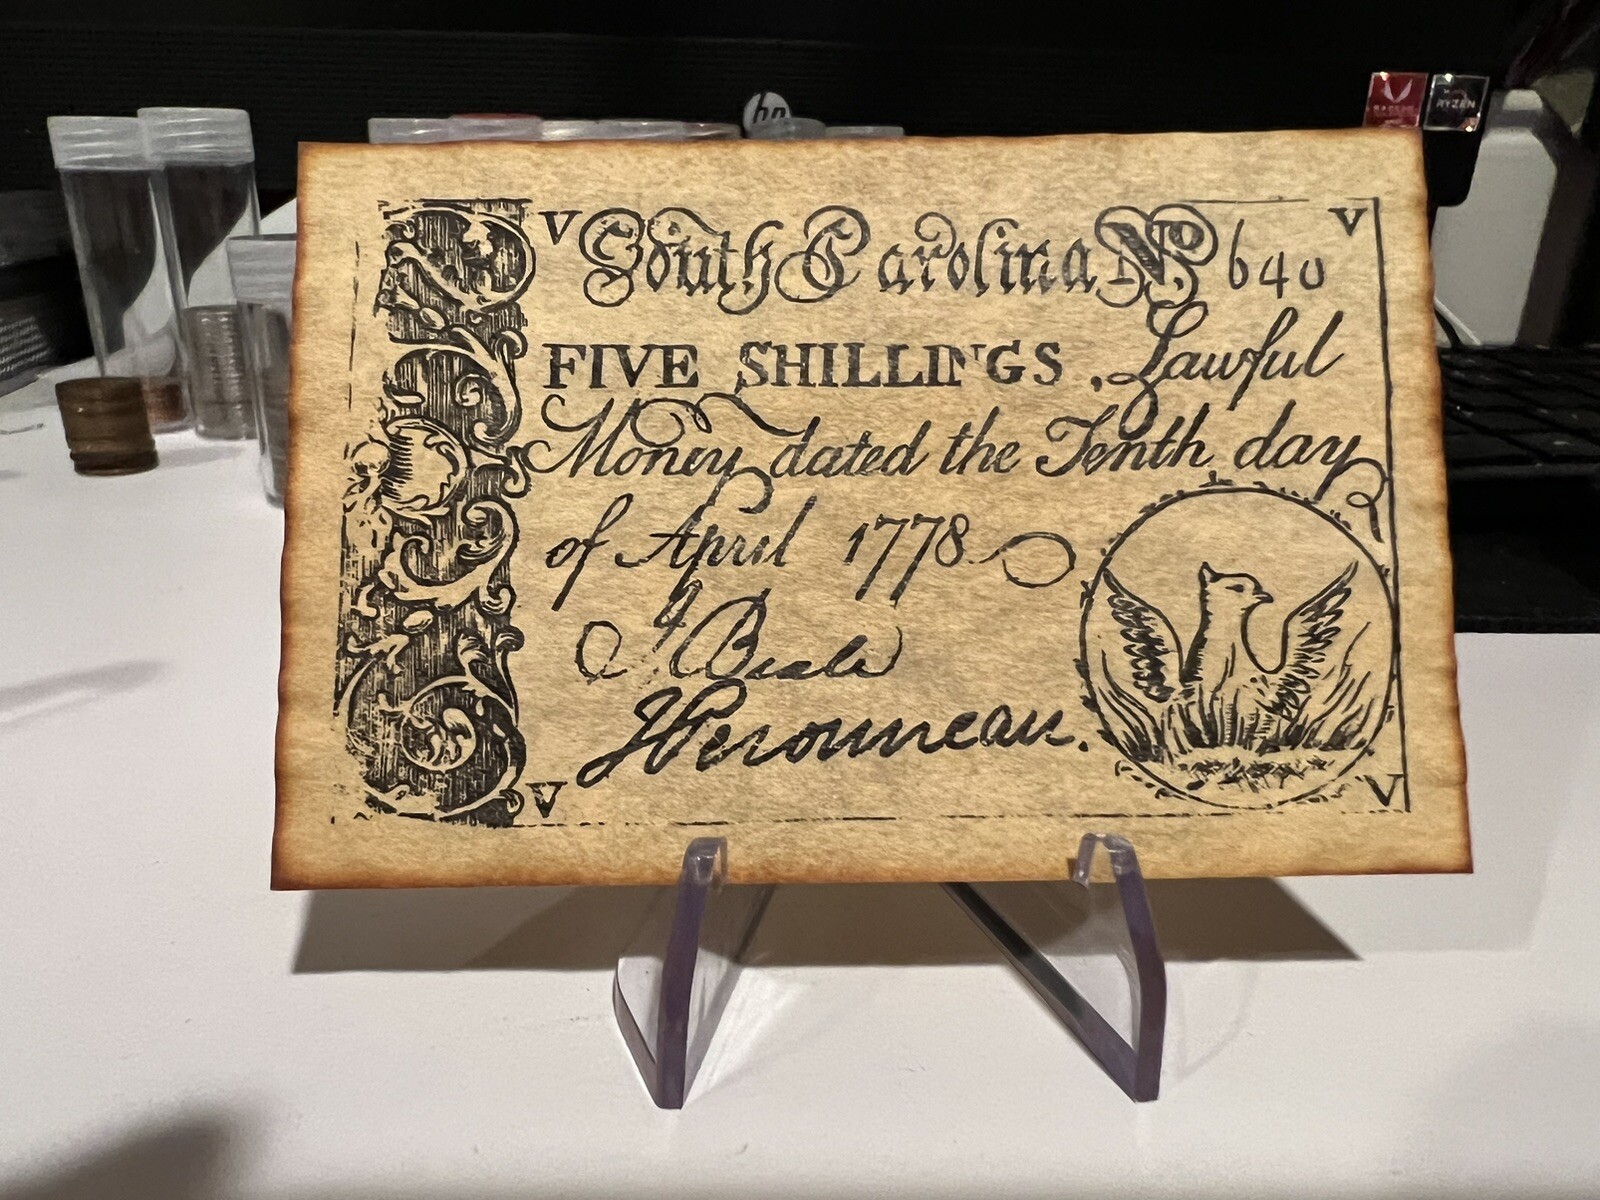 hp
RADEON
RYZEN
V South Carolina No 640 V
FIVE SHILLINGS, Lawful
Money dated the Tenth day
of April 1778
J Beale
H Peronneau.
V V